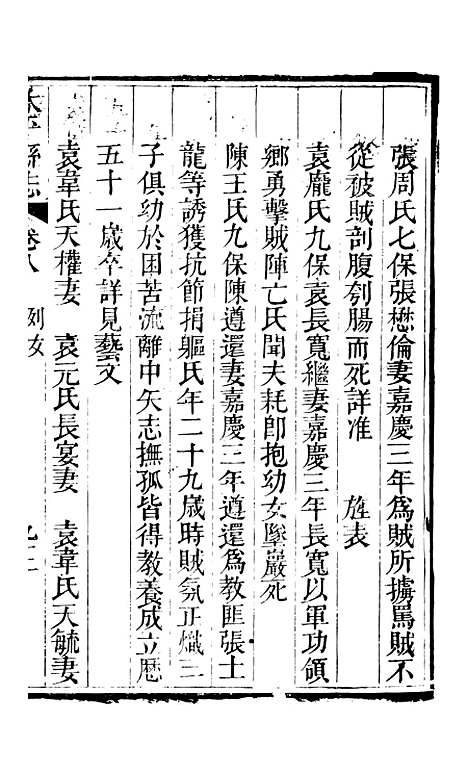 張周氏七保張懋倫妻嘉慶三年為賊所擄罵賊不
從被賊剖腹刳腸而死詳准　旌表
袁龐氏九保袁長寬繼妻嘉慶三年長寬以軍功領
鄉勇擊賊陣亡氏聞夫耗即抱幼女墜巖死
陳王氏九保陳遵還妻嘉慶二年遵還為教匪張士
龍等誘獲抗節捐軀氏年二十九歲時賊氛正熾三
子俱幼於困苦流離中矢志撫孤皆得教養成立歷
五十一歲卒詳見藝文
袁韋氏天權妻　袁元氏長宴妻　袁韋氏天毓妻
縣志　卷八　列女